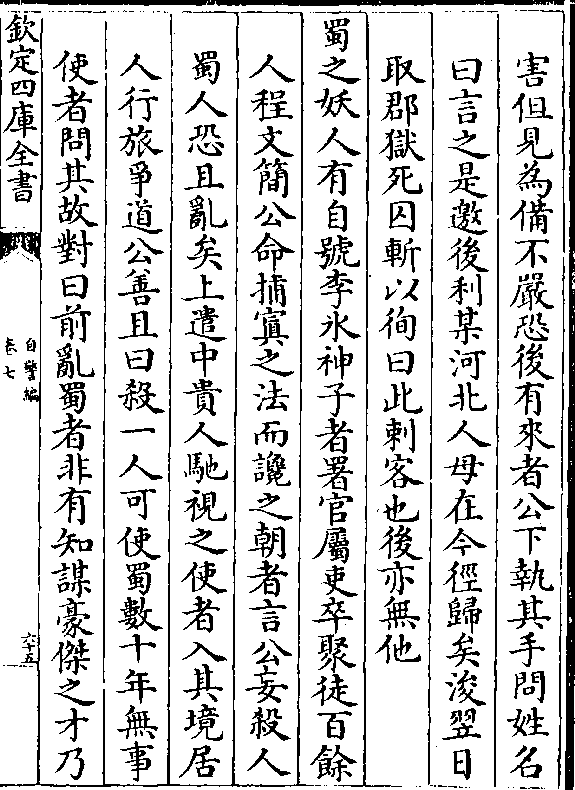 害但見為備不嚴恐後有來者公下執其手問姓名
曰言之是邀後利某河北人母在今徑歸矣浚翌日
取郡獄死囚斬以徇曰此刺客也後亦無他
蜀之妖人有自號李氷神子者署官屬吏卒聚徒百餘
人程文簡公命捕寘之法而讒之朝者言公妄殺人
蜀人恐且亂矣上遣中貴人馳視之使者入其境居
人行旅爭道公善且曰殺一人可使蜀數十年無事
使者問其故對曰前亂蜀者非有知謀豪傑之才乃
欽定四庫全書
自警編
卷七
六十五